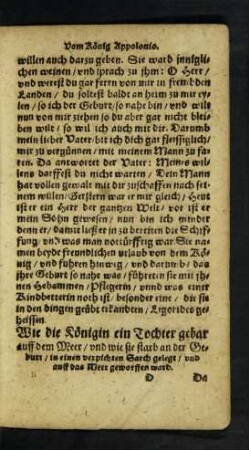 Vom König Appolonio.
willen auch darzu geben. Sie ward inniglichen
weinen / und sprach zu jhm: O Herr /
und werest du gar ferrn von mir in frembden
Landen / du soltest baldt an heim zu mir eylen
/ so ich der Geburt so nahe bin / und wilt
nun von mir ziehen so du aber gar nicht bleiben
wilt / so wil ich auch mit dir. Darumb
mein lieber Vater bit ich dich gar fleissiglich /
mir zu vergünnen / mit meinem Mann zu faren.
Da antwortet der Vater: Meines willens
darffest du nicht warten / Dein Mann
hat vollen gewalt mit dir zuschaffen nach seinem
willen / Gestern war er mir gleich / Heut
ist er ein Herr der gantzen Welt / vor ist er
mein Sohn gewesen / nun bin ich minder
denn er / damit ließ er jn zu bereiten die Schiffung
/ und was man notturfftig war. Sie namen
beyde freundlichen urlaub von dem König
/ und fuhren hinweg / und darumb / das
ihr Geburt so nahe was / führeten sie mit jhnen
Hebammen / Pflegerin / unnd was einer
Kindbetterin noth ist / besonder eine / die sie
in den dingen geübt erkandten / Ligorides geheissen.
Wie die Königin ein Tochter gebar
auff dem Meer / und wie sie starb an der Geburt
/ in einen verpichten Sarch gelegt / und
auff das Meer geworffen ward.
D Da